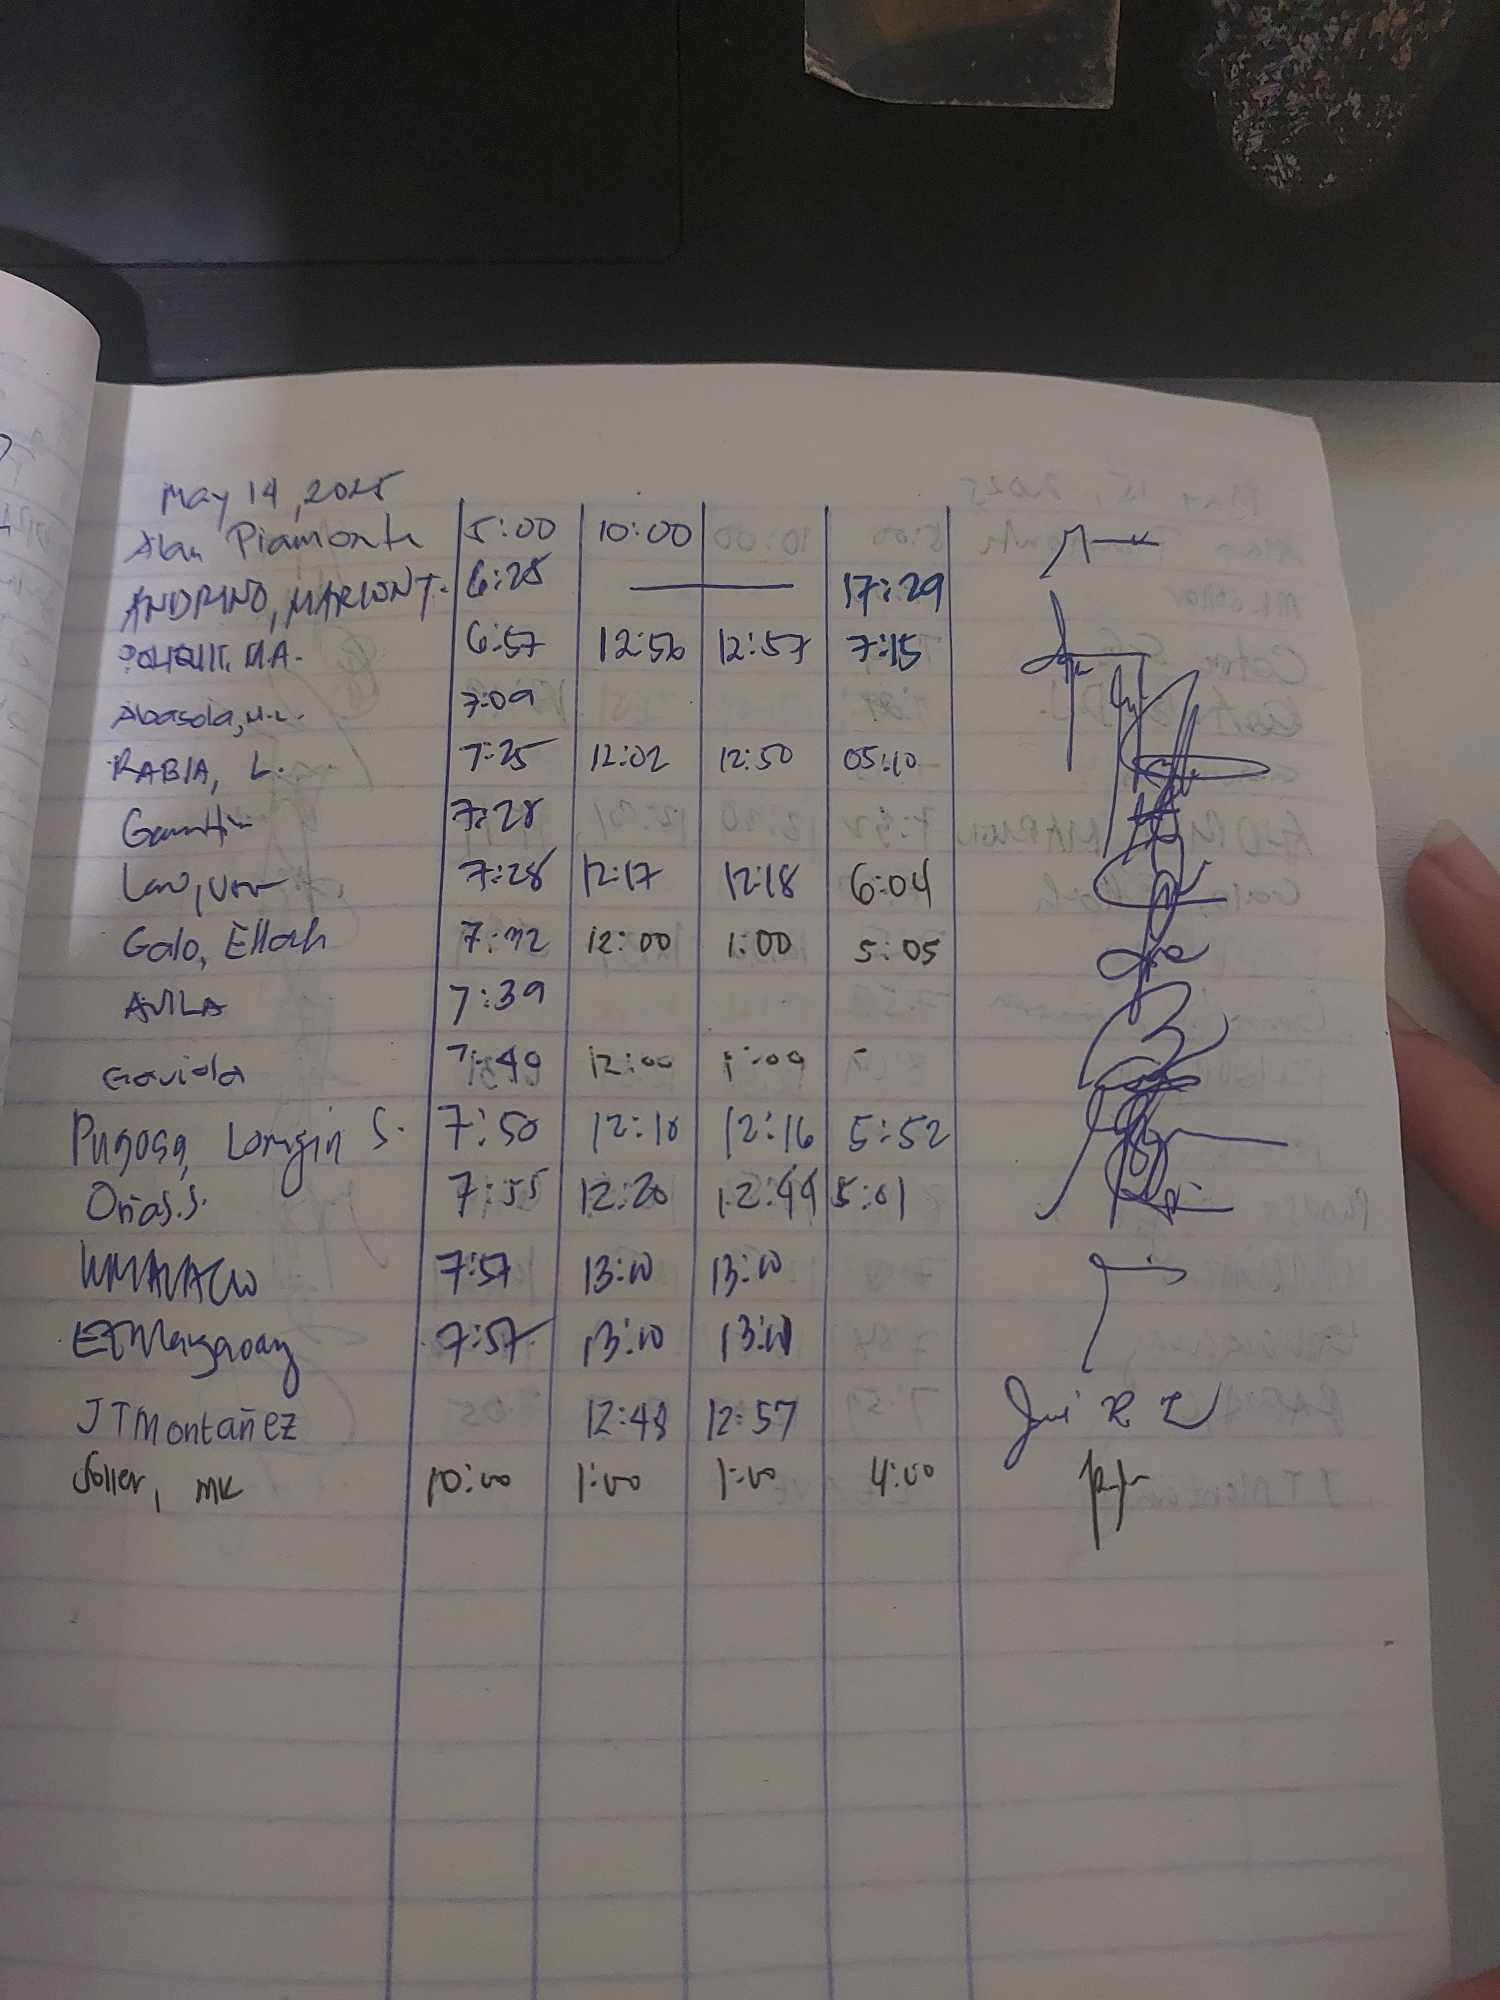 May 14, 2025
Alan Piamonte 5:00 10:00
ANDRINO, MARLON T. 6:28 17:29
M.A. 6:57 12:56 12:57 7:15
Abasola, M.L. 7:09
RABIA, L. 7:25 12:02 12:50 05:10
7:28
7:28 12:17 12:18 6:04
Galo, Ellah 7:32 12:00 1:00 5:05
AVILA 7:39
Gaviola 7:49 12:00 1:09
Pugosa, Longin S. 7:50 12:10 12:16 5:52
Oñas.S. 7:55 12:20 12:44 5:01
7:57 13:10 13:10
7:57 13:10 13:10
JTMontañez 12:48 12:57
Soller, MK 10:00 1:00 1:00 4:00